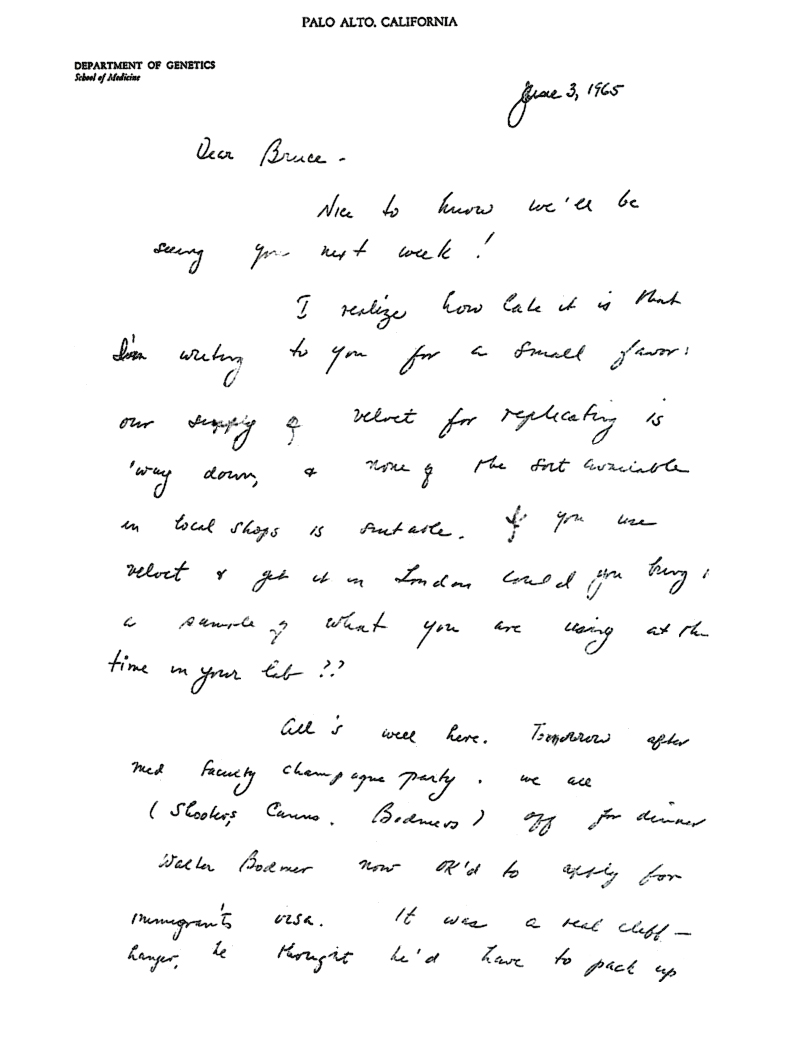 PALO ALTO, CALIFORNIA
DEPARTMENT OF GENETICS
School of Medicine
June 3, 1965
Dear Bruce -
Nice to know we'll be
seeing you next week!
I realize how late it is that
I'm writing to you for a small favor:
our supply of velvet for replicating is
'way down, & none of the sort available
in local shops is suitable. If you use
velvet & get it in London could you bring
a sample of what you are using at the
time in your lab ??
All's well here. Tomorrow after
med faculty champagne party. we all
( Shooters, Canns. Bodmers ) off for dinner
Walter Bodmer now OK'd to apply for
immigrant's visa. It was a real cliff-
hanger, he thought he'd have to pack up